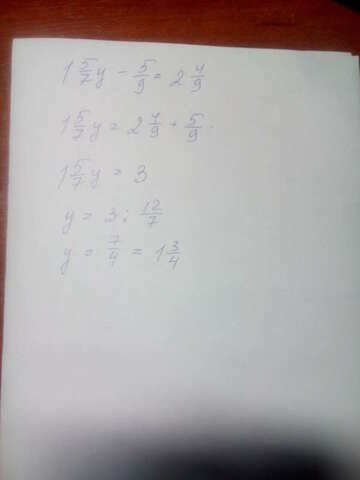 1 5/7 y - 5/9 = 2 4/9
1 5/7 y = 2 4/9 + 5/9.
1 5/7 y = 3
y = 3 : 12/7
y = 7/4 = 1 3/4